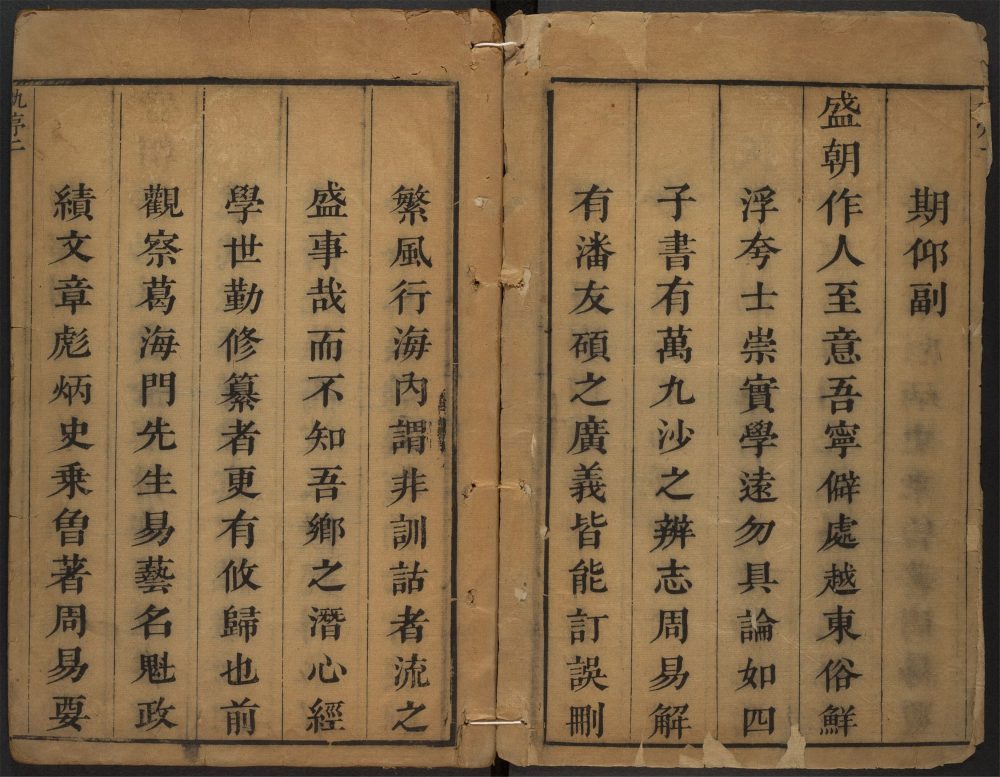 期仰副
盛朝作人至意吾寧僻處越東俗鮮
浮夸士崇實學遠勿具論如四
子書有萬九沙之辨志周易解
有潘友碩之廣義皆能訂誤刪
繁風行海內謂非訓詁者流之
盛事哉而不知吾鄉之潛心經
學世勤修纂者更有攸歸也前
觀察葛海門先生易藝名魁政
績文章彪炳史乗曽著周易要
序二